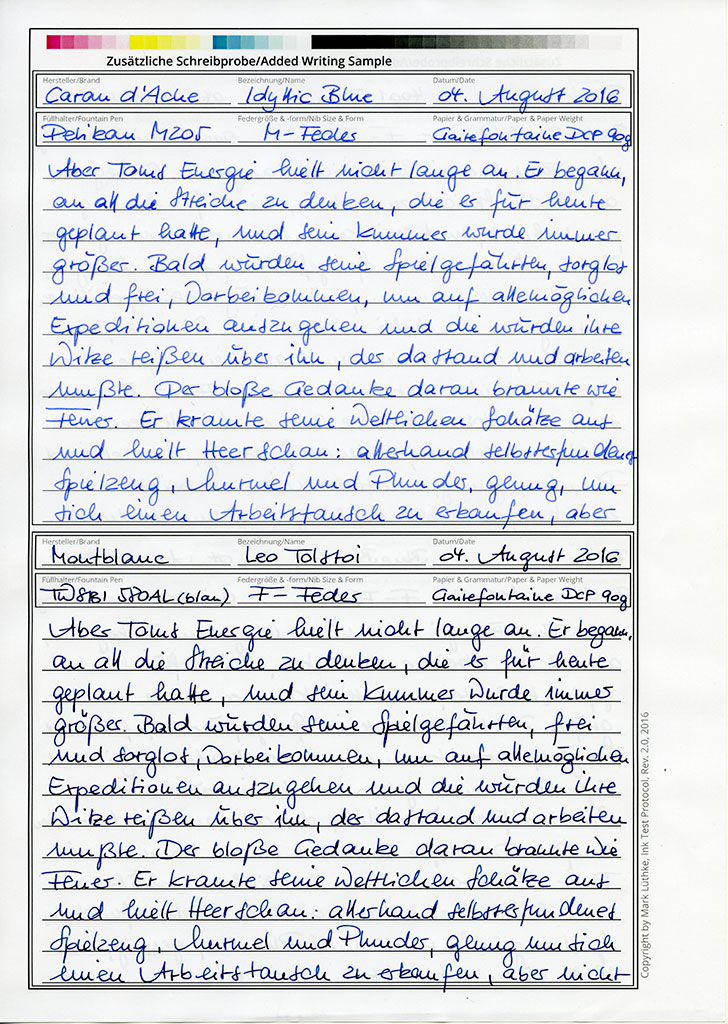 Zusätzliche Schreibprobe/Added Writing Sample
Hersteller/Brand Bezeichnung/Name Datum/Date
Caran d'Ache Idyllic Blue 04. August 2016
Füllhalter/Fountain Pen Federgröße & -form/Nib Size & Form Papier & Grammatur/Paper & Paper Weight
Pelikan M205 M-Feder Clairefontaine DCP 90g
Aber Toms Energie hielt nicht lange an. Er begann,
an all die Streiche zu denken, die er für heute
geplant hatte, und sein Kummer wurde immer
größer. Bald würden seine Spielgefährten, sorglos
und frei, vorbeikommen, um auf allemöglichen
Expeditionen auszugehen und die würden ihre
Witze reißen über ihn, der dastand und arbeiten
mußte. Der bloße Gedanke daran brannte wie
Feuer. Er kramte seine weltlichen Schätze aus
und hielt Heerschau: allerhand selbsterfundenes
Spielzeug, Murmel und Plunder, genug, um
sich einen Arbeitstausch zu erkaufen, aber
Hersteller/Brand Bezeichnung/Name Datum/Date
Montblanc Leo Tolstoi 04. August 2016
Füllhalter/Fountain Pen Federgröße & -form/Nib Size & Form Papier & Grammatur/Paper & Paper Weight
TWSBI 580AL (blau) F-Feder Clairefontaine DCP 90g
Aber Toms Energie hielt nicht lange an. Er begann,
an all die Streiche zu denken, die er für heute
geplant hatte, und sein Kummer wurde immer
größer. Bald würden seine Spielgefährten, frei
und sorglos, vorbeikommen, um auf allemöglichen
Expeditionen auszugehen und die würden ihre
Witze reißen über ihn, der dastand und arbeiten
mußte. Der bloße Gedanke daran brannte wie
Feuer. Er kramte seine weltlichen Schätze aus
und hielt Heerschau: allerhand selbsterfundenes
Spielzeug, Murmel und Plunder, genug um sich
einen Arbeitstausch zu erkaufen, aber nicht
Copyright by Mark Lüthke, Ink Test Protocol, Rev. 2.0, 2016